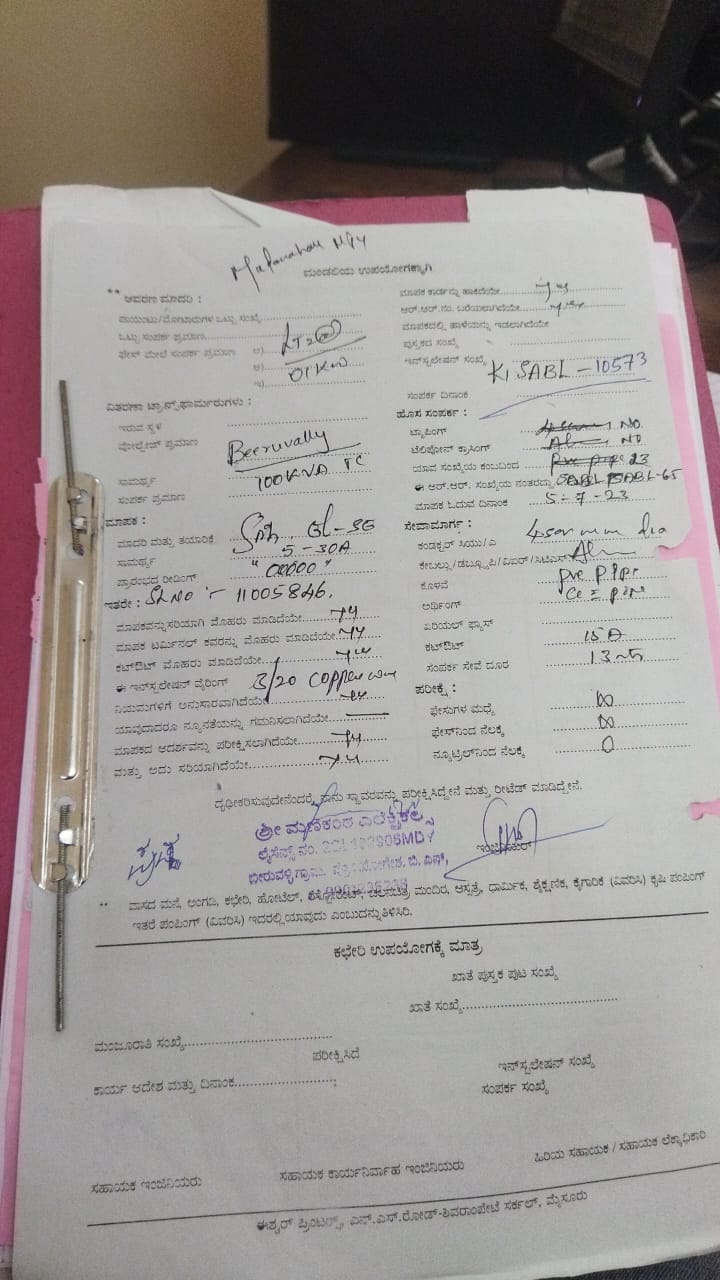 ಮಂಡಲಿಯ ಉಪಯೋಗಕ್ಕಾಗಿ
** ಆವರಣ ಮಾದರಿ :
ಪಾಯಿಂಟು/ಮೋಟಾರುಗಳ ಒಟ್ಟು ಸಂಖ್ಯೆ
ಒಟ್ಟು ಸಂಪರ್ಕ ಪ್ರಮಾಣ
ಫೇಸ್ ಮೇಲೆ ಸಂಪರ್ಕ ಪ್ರಮಾಣ ಅ)
ಆ) 01 KW
ಇ)
ವಿತರಣಾ ಟ್ರಾನ್ಸ್‌ಫಾರ್ಮರುಗಳು :
ಇರುವ ಸ್ಥಳ
ವೋಲ್ಟೇಜ್ ಪ್ರಮಾಣ Beeruvally
ಸಾಮರ್ಥ್ಯ 100KVA TC
ಸಂಪರ್ಕ ಪ್ರಮಾಣ
ಮಾಪಕ :
ಮಾದರಿ ಮತ್ತು ತಯಾರಿಕೆ
ಸಾಮರ್ಥ್ಯ 5-30A
ಪ್ರಾರಂಭದ ರೀಡಿಂಗ್ "00000"
ಇತರೇ : SLNO :- 11005846.
ಮಾಪಕವನ್ನು ಸರಿಯಾಗಿ ಮೊಹರು ಮಾಡಿದೆಯೇ
ಮಾಪಕ ಟರ್ಮಿನಲ್ ಕವರನ್ನು ಮೊಹರು ಮಾಡಿದೆಯೇ
ಕಟ್‌ಔಟ್ ಮೊಹರು ಮಾಡಿದೆಯೇ
ಈ ಇನ್‌ಸ್ಟಲೇಷನ್ ವೈರಿಂಗ್ 3/20 copper
ನಿಯಮಗಳಿಗೆ ಅನುಸಾರವಾಗಿದೆಯೇ
ಯಾವುದಾದರೂ ನ್ಯೂನತೆಯನ್ನು ಗಮನಿಸಲಾಗಿದೆಯೇ
ಮಾಪಕದ ಆದರ್ಶವನ್ನು ಪರೀಕ್ಷಿಸಲಾಗಿದೆಯೇ
ಮತ್ತು ಅದು ಸರಿಯಾಗಿದೆಯೇ
ಮಾಪಕ ಕಾರ್ಡನ್ನು ಹಾಕಿದೆಯೇ
ಆರ್.ಆರ್.ನಂ. ಬರೆಯಲಾಗಿದೆಯೇ
ಮಾಪಕದಲ್ಲಿ ಹಾಳೆಯನ್ನು ಇಡಲಾಗಿದೆಯೇ
ಪುಸ್ತಕದ ಸಂಖ್ಯೆ
ಇನ್‌ಸ್ಟಲೇಷನ್ ಸಂಖ್ಯೆ
KISABL-10573
ಸಂಪರ್ಕ ದಿನಾಂಕ
ಹೊಸ ಸಂಪರ್ಕ :
ಟ್ಯಾಪಿಂಗ್ NO
ಟೆಲಿಫೋನ್ ಕ್ರಾಸಿಂಗ್ NO
ಯಾವ ಸಂಖ್ಯೆಯ ಕಂಬದಿಂದ 23
ಈ ಆರ್.ಆರ್. ಸಂಖ್ಯೆಯ ನಂತರದ್ದು
ಮಾಪಕ ಓದುವ ದಿನಾಂಕ 5-7-23
ಸೇವಾಮಾರ್ಗ :
ಕಂಡಕ್ಟರ್ ಸಿಯು/ಎ
ಕೇಬಲ್ಲು/ಡಬ್ಲ್ಯೂಪಿ/ಏಐಆರ್/ಸಿಟಿಎಸ್
ಕೊಳವೆ pvc pipe
ಅರ್ಥಿಂಗ್
ಏರಿಯಲ್ ಫ್ಯೂಸ್
ಕಟ್‌ಔಟ್ 15A
ಸಂಪರ್ಕ ಸೇವೆ ದೂರ 13 mts
ಪರೀಕ್ಷೆ :
ಫೇಸುಗಳ ಮಧ್ಯೆ ∞
ಫೇಸ್‌ನಿಂದ ನೆಲಕ್ಕೆ ∞
ನ್ಯೂಟ್ರಲ್‌ನಿಂದ ನೆಲಕ್ಕೆ 0
ದೃಢೀಕರಿಸುವುದೇನೆಂದರೆ, ನಾನು ಸ್ಥಾವರವನ್ನು ಪರೀಕ್ಷಿಸಿದ್ದೇನೆ ಮತ್ತು ರೀಟೆಡ್ ಮಾಡಿದ್ದೇನೆ.
ಶ್ರೀ ಮಣಿಕಂಠ ಎಲೆಕ್ಟ್ರಿಕಲ್ಸ್
ಲೈಸೆನ್ಸ್ ನಂ.
** ವಾಸದ ಮನೆ, ಅಂಗಡಿ, ಕಛೇರಿ, ಹೋಟೆಲ್, ರೆಸ್ಟೋರೆಂಟ್, ಚಲನಚಿತ್ರ ಮಂದಿರ, ಆಸ್ಪತ್ರೆ, ಧಾರ್ಮಿಕ, ಶೈಕ್ಷಣಿಕ, ಕೈಗಾರಿಕೆ (ವಿವರಿಸಿ) ಕೃಷಿ ಪಂಪಿಂಗ್
ಇತರೆ ಪಂಪಿಂಗ್ (ವಿವರಿಸಿ) ಇದರಲ್ಲಿ ಯಾವುದು ಎಂಬುದನ್ನು ತಿಳಿಸಿರಿ.
ಕಛೇರಿ ಉಪಯೋಗಕ್ಕೆ ಮಾತ್ರ
ಖಾತೆ ಪುಸ್ತಕ ಪುಟ ಸಂಖ್ಯೆ
ಖಾತೆ ಸಂಖ್ಯೆ
ಮಂಜೂರಾತಿ ಸಂಖ್ಯೆ
ಪರೀಕ್ಷಿಸಿದೆ
ಇನ್‌ಸ್ಟಲೇಷನ್ ಸಂಖ್ಯೆ
ಕಾರ್ಯ ಆದೇಶ ಮತ್ತು ದಿನಾಂಕ
ಸಂಪರ್ಕ ಸಂಖ್ಯೆ
ಸಹಾಯಕ ಇಂಜಿನಿಯರು ಸಹಾಯಕ ಕಾರ್ಯನಿರ್ವಾಹ ಇಂಜಿನಿಯರು ಹಿರಿಯ ಸಹಾಯಕ / ಸಹಾಯಕ ಲೆಕ್ಕಾಧಿಕಾರಿ
ಈಶ್ವರ್ ಪ್ರಿಂಟರ್ಸ್, ಎನ್.ಎಸ್.ರೋಡ್-ಶಿವರಾಂಪೇಟೆ ಸರ್ಕಲ್, ಮೈಸೂರು